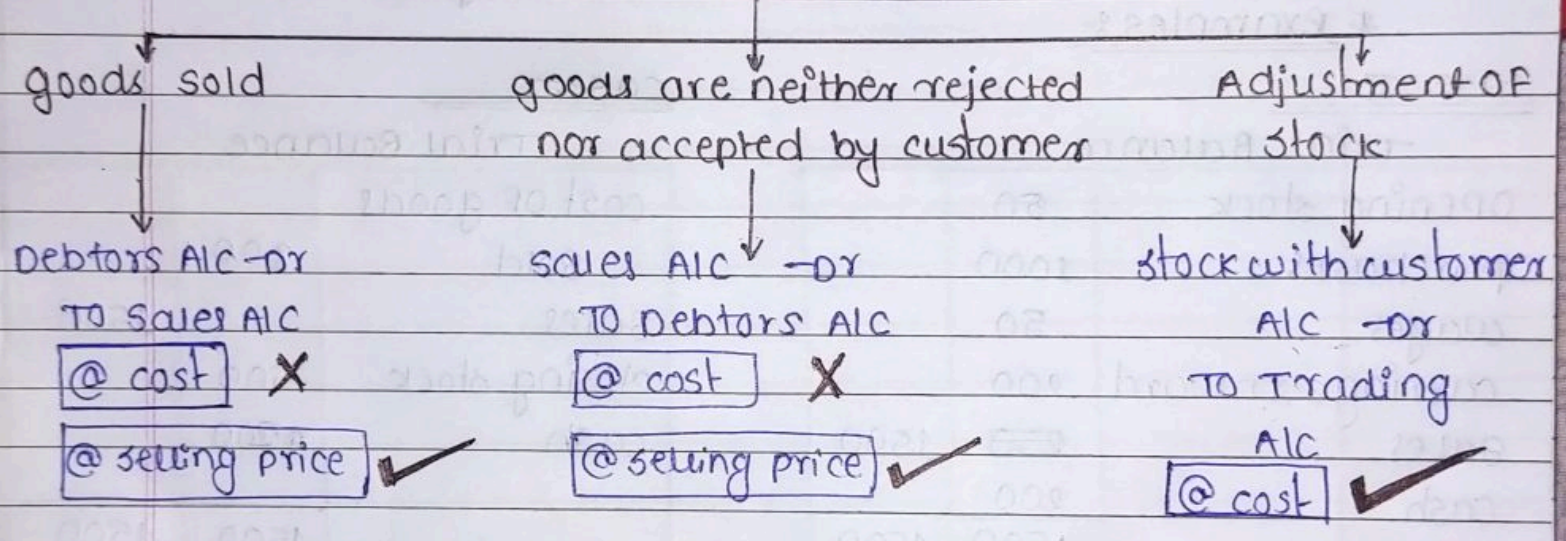 goods sold
Debtors A/C -Dr
To Sales A/C
@ cost X
@ selling price ✓
goods are neither rejected
nor accepted by customer
sales A/C -Dr
To Debtors A/C
@ cost X
@ selling price ✓
Adjustment OF
stock
stock with customer
A/C -Dr
To Trading
A/C
@ cost ✓